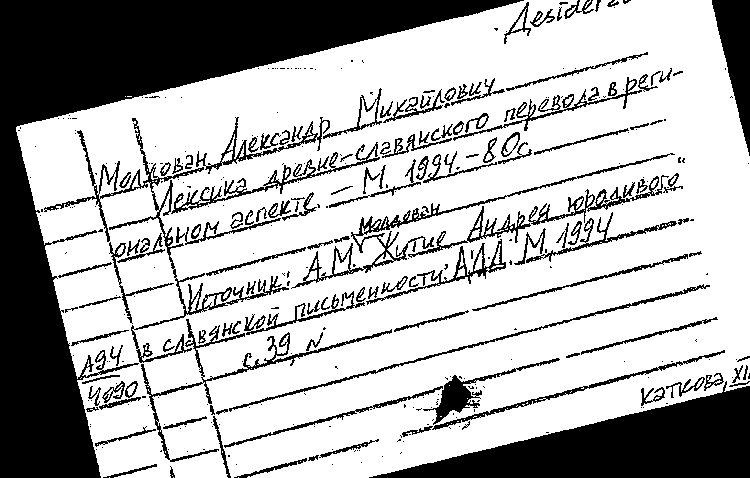 Desiderat
Молдован, Александр Михайлович
Лексика древне-славянского перевода в реги-
ональном аспекте. – М., 1994. – 80с.
Молдован
Источник: А.М. "Житие Андрея юродивого"
в славянской письменности: АДД. М., 1994
с. 39, №
А94
4090
Каткова, XII